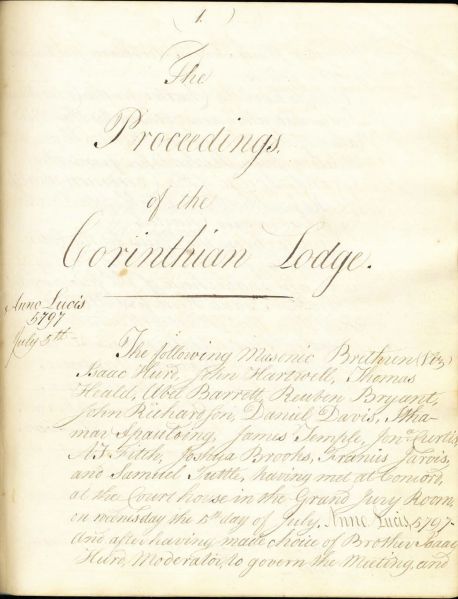 (1.)
The
Proceedings.
of the
Corinthian Lodge.
Anno Lucis
5797
July 5th-
The following Masonic Brithren (Viz)
Isaac Hurd, John Hartwell, Thomas
Heald, Abel Barrett, Reuben Bryant,
John Richardson, Daniel Davis, Itha-
mar Spaulding, James Temple, Jona. Curtis,
Fitch, Joshua Brooks, Francis Jarvis,
and Samuel Tuttle, having met at Concord,
at the Court house in the Grand Jury Room,
on wednsday the 5th day of July, Anno Lucis, 5797-
And after having made choice of Brother Isaac
Hurd, Moderator, to govern the Meeting, and